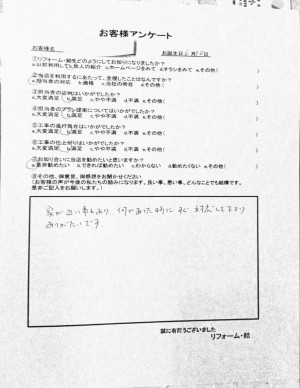 お客様アンケート
お客様名
お誕生日 月 日
①リフォーム・結をどのようにしてお知りになりましたか？
a.以前利用して b.他人の紹介 c.ホームページをみて d.チラシをみて e.その他( )
②当店を利用するにあたって、重視したことはなんですか？
a.担当者の対応 b.価格 c.当社の所在 d.その他( )
③担当者の応対はいかがでしたか？
a.大変満足 b.満足 c.やや不満 d.不満 e.その他( )
④担当者のプラン提案についてはいかがでしたか？
a.大変満足 b.満足 c.やや不満 d.不満 e.その他( )
⑤工事の進行具合はいかがでしたか？
a.大変満足 b.満足 c.やや不満 d.不満 e.その他( )
⑥工事の仕上がりはいかがでしたか？
a.大変満足 b.満足 c.やや不満 d.不満 e.その他( )
⑦お知り合いに当店を勧めたいと思いますか？
a.是非勧めたい b.できれば勧めたい c.わからない d.勧めたくない e.その他( )
⑧その他、御意見、御感想をお聞かせください
(お客様の声が今後の私たちの励みになります。良い事、悪い事、どんなことでも結構です。
是非ご記入をお願いします。)
家が近い事もあり、何かあった時に すぐ 対応して下さり
ありがたいです。
誠に有難うございました
リフォーム・結